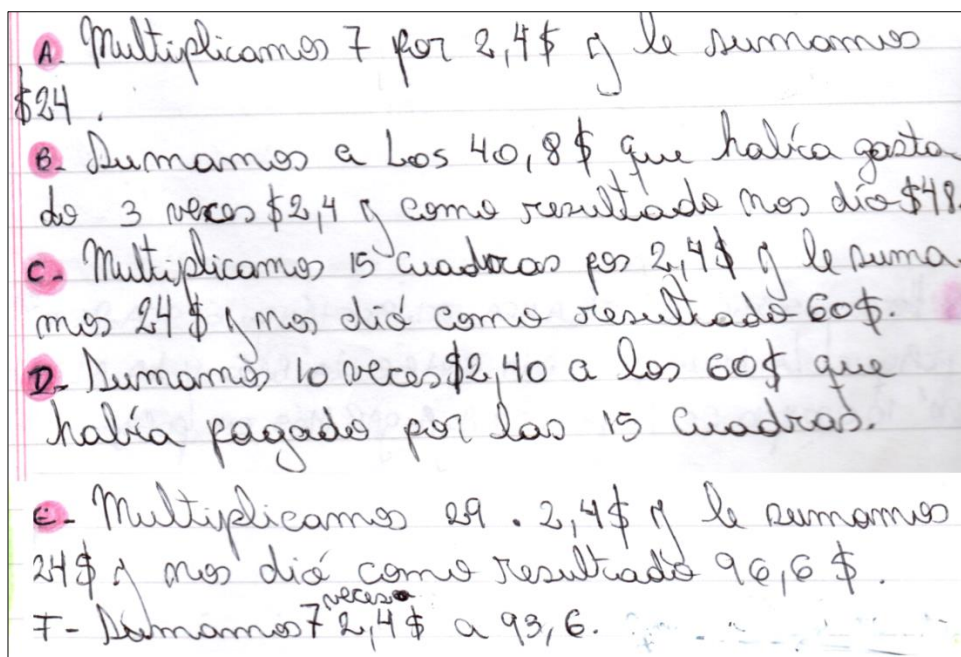 A. Multiplicamos 7 por 2,4$ y le sumamos
$24.
B. Sumamos a Los 40,8$ que había gasta
do 3 veces $2,4 y como resultado nos dio $48.
C- Multiplicamos 15 cuadras por 2,4$ y le suma-
mos 24$ y nos dió como resultado 60$.
D- Sumamos 10 veces $2,40 a los 60$ que
había pagado por las 15 cuadras.
E- Multiplicamos 29 . 2,4$ y le sumamos
24$ y nos dió como resultado 96,6$.
F- Sumamos 7 veces 2,4$ a 93,6.